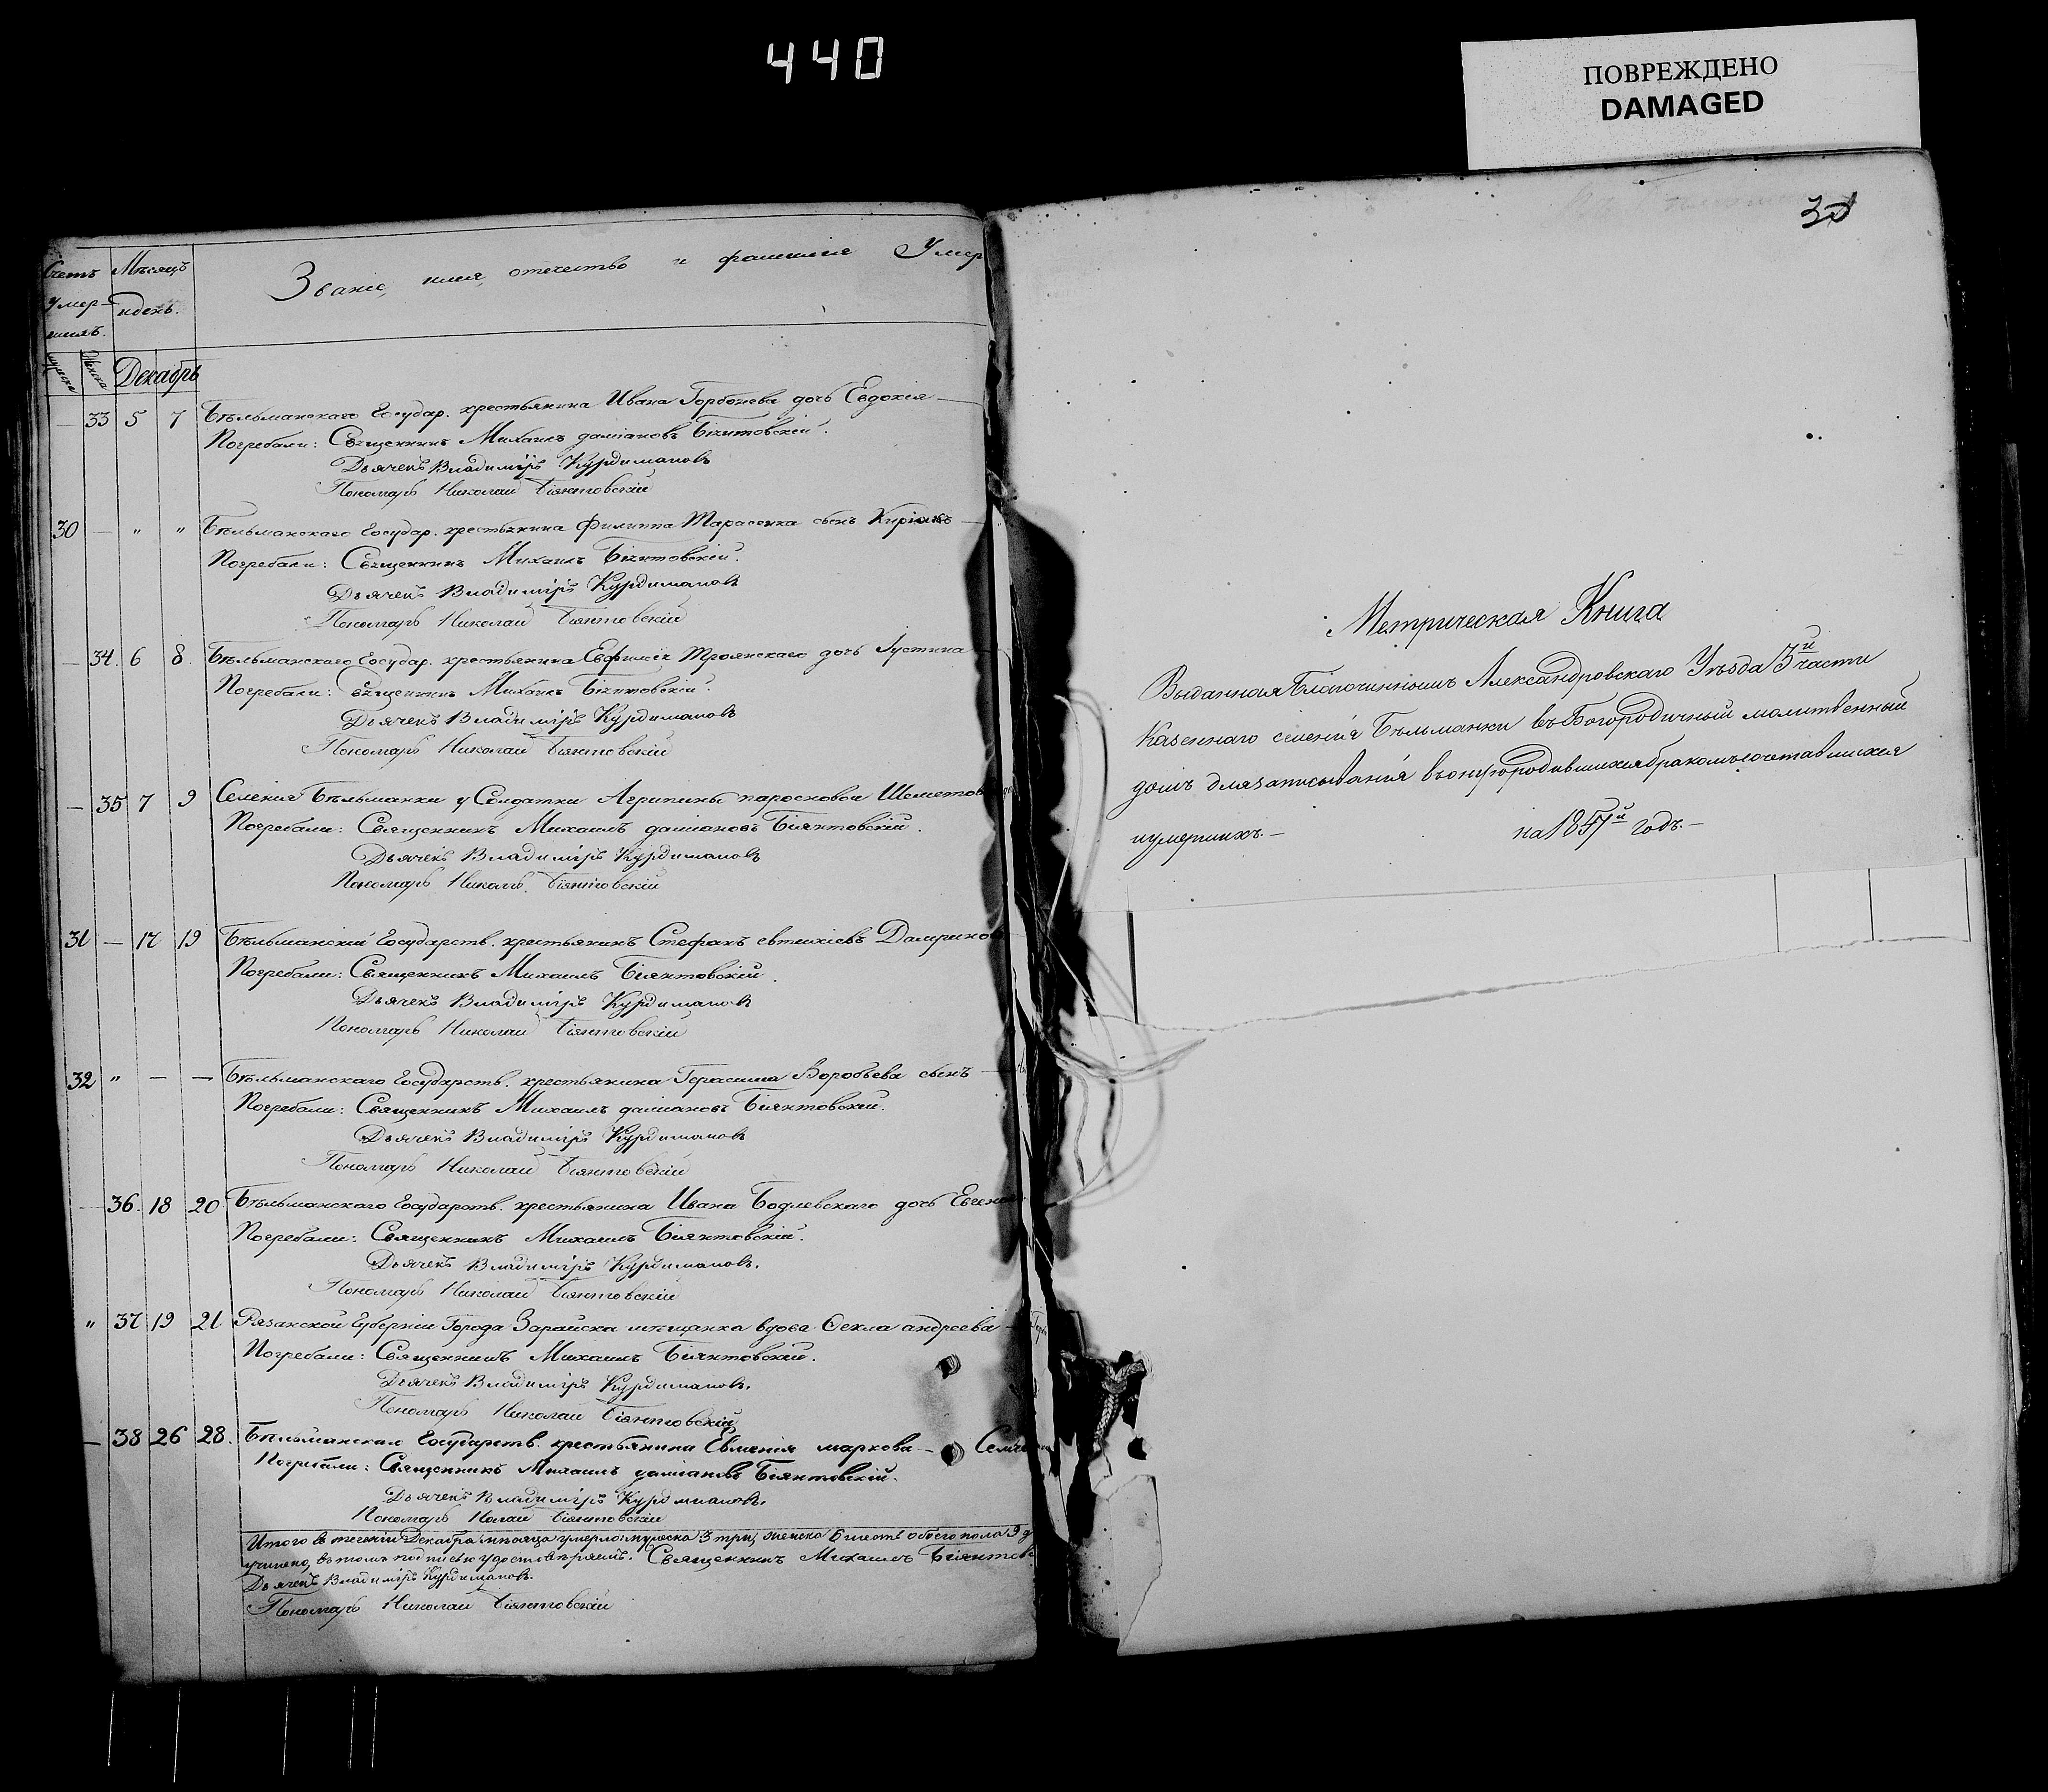 440
ПОВРЕЖДЕНО
DAMAGED
Счетъ Мѣсяцъ
умер- и день.
шихъ.
Званіе, имя, отечество и фамилія Умер
Декабрь
33 5 7 Бѣльманскаго Государ. крестьянина Ивана Горбонева дочь Евдокія
Погребали: Священникъ Михаилъ даміановъ Біянтовскій.
Дьячекъ Владиміръ Курдимановъ
Пономарь Николай Біянтовскій
30 — " " Бѣльманскаго Государ. крестьянина Филиппа Тарасенка сынъ
Погребали: Священникъ Михаилъ Біянтовскій.
Дьячекъ Владиміръ Курдимановъ
Пономарь Николай Біянтовскій
— 34. 6 8. Бѣльманскаго Государ. крестьянина Евфимія Троянскаго дочь Іустина
Погребали: Священникъ Михаилъ Біянтовскій.
Дьячекъ Владиміръ Курдимановъ
Пономарь Николай Біянтовскій
— 35 7 9 Селенія Бѣльманки у Солдатки Агрипины паросковои
Погребали: Священникъ Михаилъ даміановъ Біянтовскій.
Дьячекъ Владиміръ Курдимановъ
Пономарь Никола. Біянтовскій
31 — 17 19 Бѣльманскій Государств. крестьянинъ Стефанъ евтихіевъ
Погребали: Священникъ Михаилъ Біянтовскій.
Дьячекъ Владиміръ Курдимановъ
Пономарь Николай Біянтовскій
32 " — — Бѣльманскаго Государств. крестьянина Герасима Воробьева сынъ —
Погребали: Священникъ Михаилъ даміановъ Біянтовскій.
Дьячекъ Владиміръ Курдимановъ
Пономарь Николай Біянтовскій
36. 18 20 Бѣльманскаго Государств. крестьянина Ивана Бодлевскаго дочь
Погребали: Священникъ Михаилъ Біянтовскій.
Дьячекъ Владиміръ Курдимановъ.
Пономарь Николай Біянтовскій
" 37 19 21 Рязанской Губерніи Города Зарайска мѣщанка вдова Ѳекла андреева —
Погребали: Священникъ Михаилъ Біянтовскій.
Дьячекъ Владиміръ Курдимановъ.
Пономарь Николай Біянтовскій
— 38 26 28. Бѣльманская Государств. крестьянина Евгенія маркова —
Погребали: Священникъ Михаилъ даміановъ Біянтовскій.
Дьячекъ Владиміръ Курдимановъ.
Пономарь Николай Біянтовскій
Итого въ теченіи Декабря мѣсяца умерло: мужеска 3 три, женска 6 шесть обоего пола 9
учинено, въ томъ подписью удостовѣряемъ. Священникъ Михаилъ Біянтов
Дьячекъ Владиміръ Курдимановъ.
Пономарь Николай Біянтовскій
Метрическая Книга
Выданная Благочиннымъ Александровскаго Уѣзда 3й части
Казеннаго селенія Бѣльманки въ Богородичный молитвенный
домъ для записыванія въ оную родившихся бракомъ сочетавшихся
и умершихъ.— на 1847й годъ.—